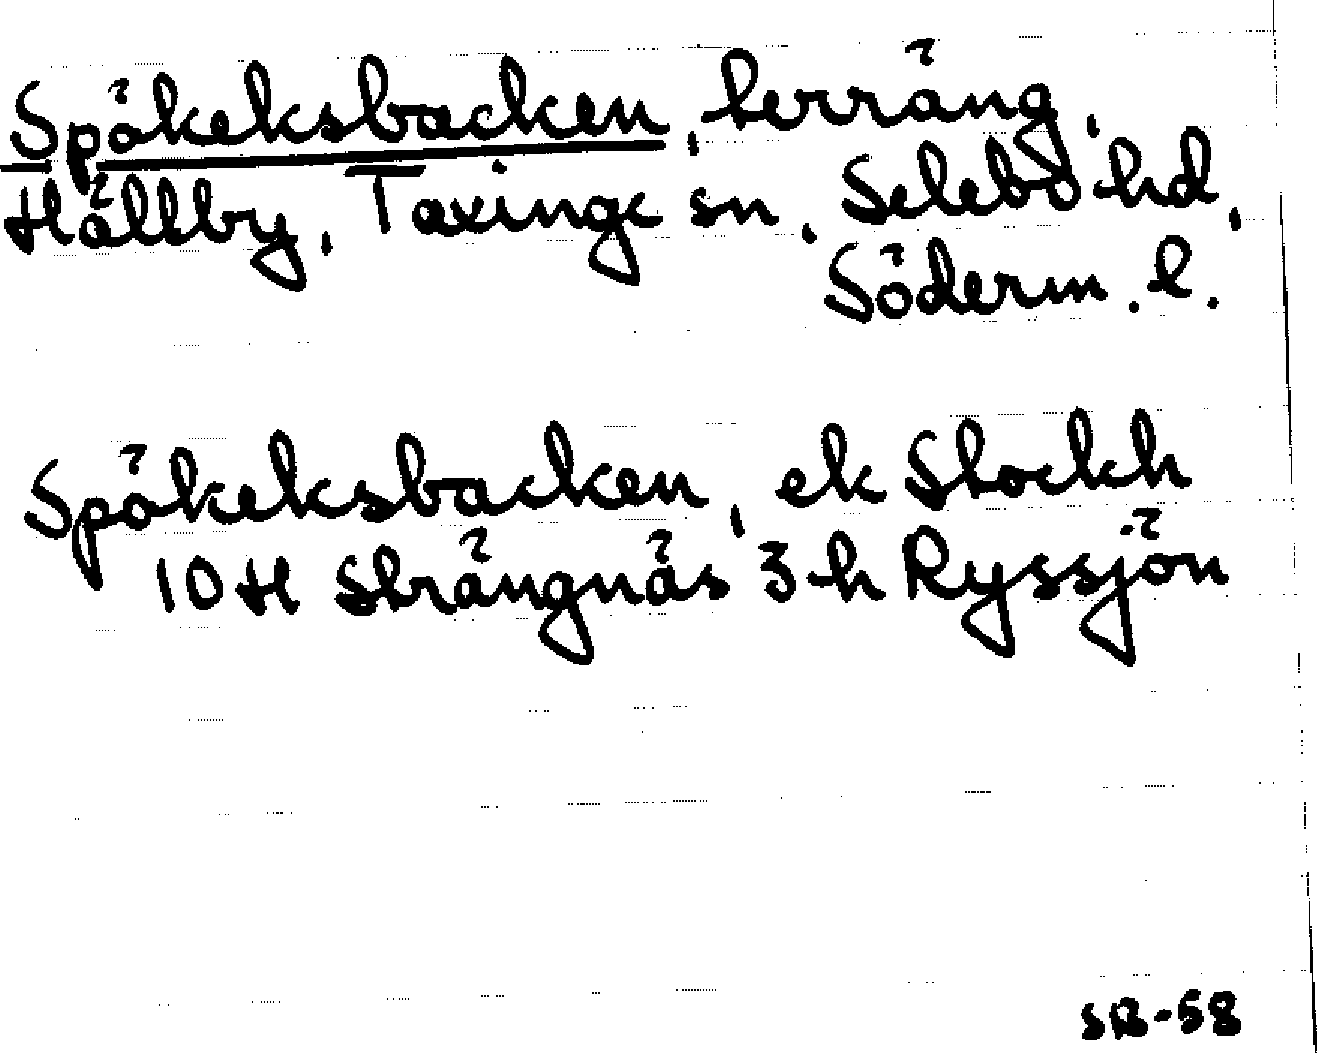 Spökeksbacken, terräng,
Hällby, Taxinge sn, Selebo hd,
Söderm. l.
Spökeksbacken, ek Stockh
10 H Strängnäs 3 h Ryssjön
SR-58